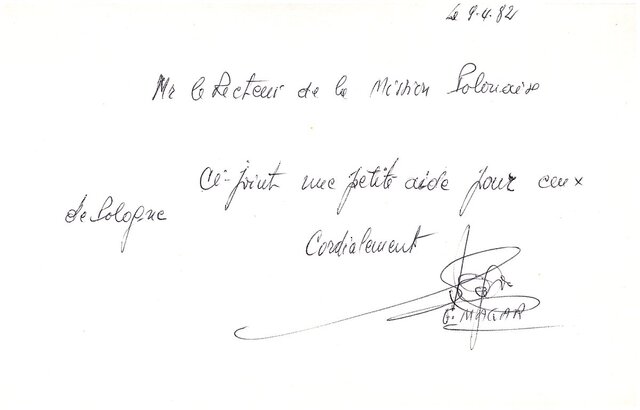 Le 9.4.82
Mr le Recteur de la Mission Polonaise
Ci-joint une petite aide pour ceux
de Pologne
Cordialement
G. MAGAR